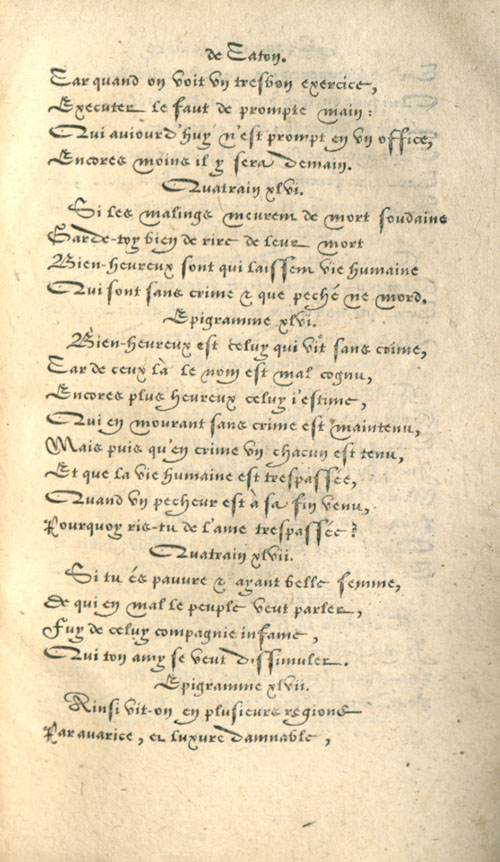 de Caton.
Car quand on voit vn tresbon exercice,
Executer le faut de prompte main:
Qui auiourd'huy n'est prompt en vn office,
Encores moins il y sera demain.
Quatrain xlvi.
Si les malings meurent de mort soudaine
Garde-toy bien de rire de leur mort
Bien-heureux sont qui laissent vie humaine
Qui sont sans crime & que peché ne mord.
Epigramme xlvi.
Bien-heureux est celuy qui vit sans crime,
Car de ceux là le nom est mal cognu,
Encores plus heureux celuy i'estime,
Qui en mourant sans crime est maintenu,
Mais puis qu'en crime vn chacun est tenu,
Et que la vie humaine est trespassée,
Quand vn pecheur est à sa fin venu,
Pourquoy ris-tu de l'ame trespassée?
Quatrain xlvii.
Si tu és pauure & ayant belle femme,
De qui en mal le peuple veut parler,
Fuy de celuy compagnie infame,
Qui ton amy se veut dissimuler.
Epigramme xlvii.
Ainsi vit-on en plusieurs regions
Par auarice, et luxure damnable,